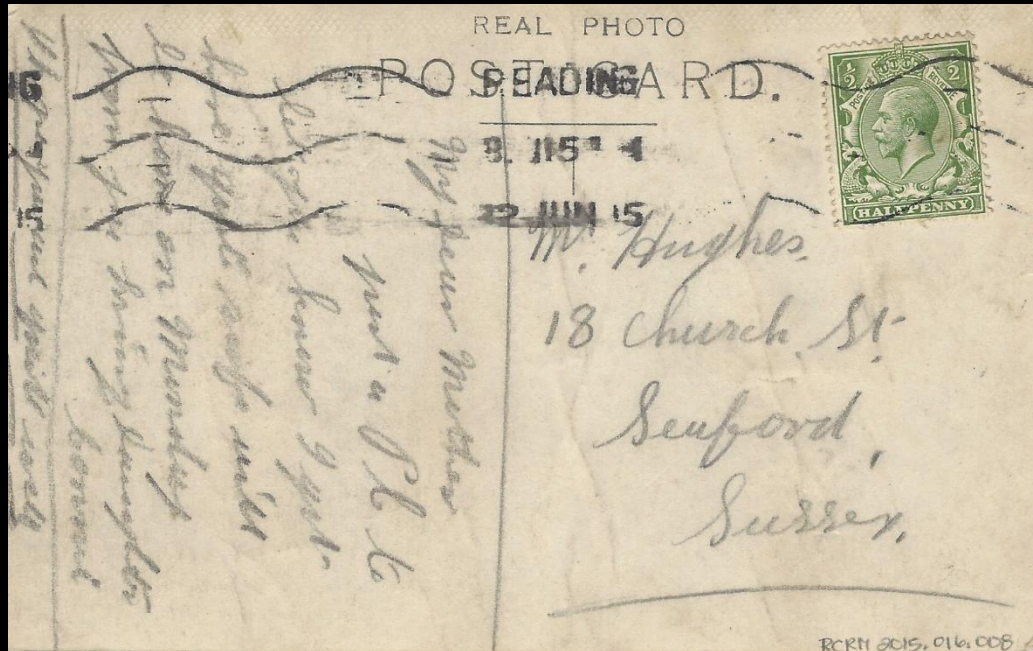 REAL PHOTO
POST CARD.
READING
22 JUN 15
HALFPENNY
Mr. Hughes,
18 Church St.
Seaford,
Sussex.
My dear Mother
just a P.C. to
let you know I got
here quite safe will
be home on Monday
from your loving daughter
RCRM 2015.016.008